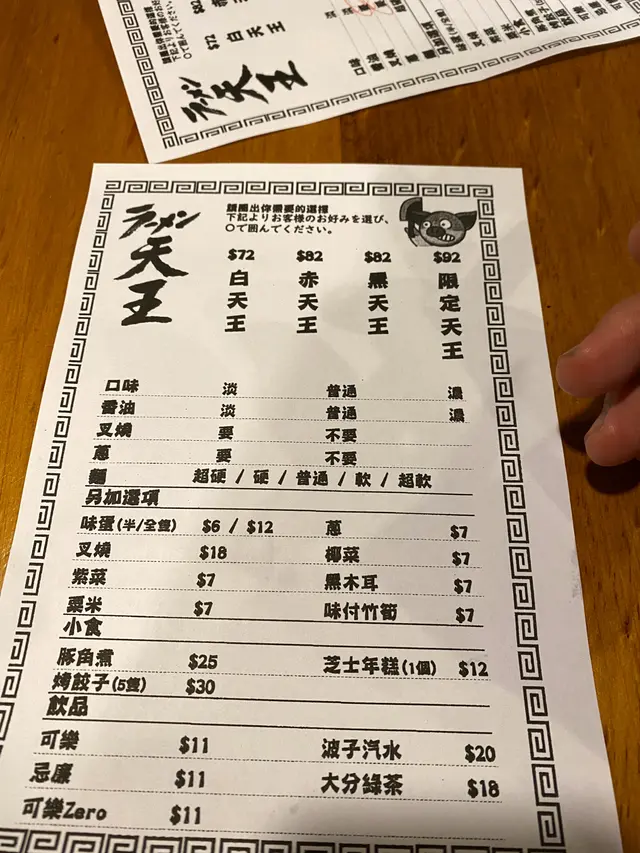 $72
白天王
ラーメン
天王
ラーメン
天王
請圈出你需要的選擇
下記よりお客様のお好みを選び、
○で囲んでください。
$72 $82 $82 $92
白天王 赤天王 黒天王 限定天王
口味 淡 普通 濃
香油 淡 普通 濃
叉燒 要 不要
蔥 要 不要
麵 超硬 / 硬 / 普通 / 軟 / 超軟
另加選項
味蛋(半/全隻) $6 / $12 蔥 $7
叉燒 $18 椰菜 $7
紫菜 $7 黑木耳 $7
粟米 $7 味付竹筍 $7
小食
豚角煮 $25 芝士年糕(1個) $12
烤餃子(5隻) $30
飲品
可樂 $11 波子汽水 $20
忌廉 $11 大分綠茶 $18
可樂Zero $11